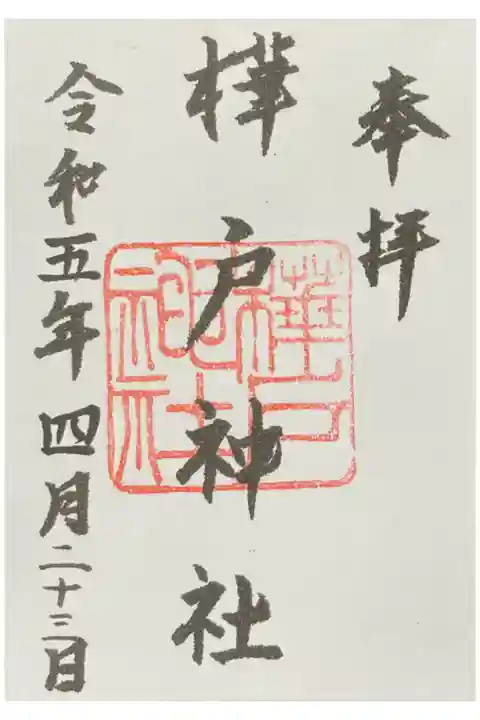 奉拝
樺戸神社
樺戸神社
令和五年四月二十三日